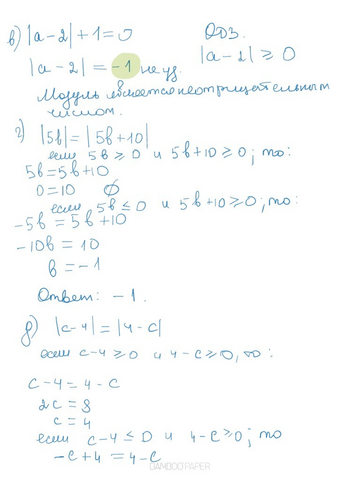 в) |a-2|+1=0 ОДЗ.
|a-2|=-1 не уд. |a-2| ≥ 0
Модуль является неотрицательным
числом.
г) |5b|=|5b+10|
если 5b ≥ 0 и 5b+10 ≥ 0; то:
5b=5b+10
0=10 ∅
если 5b ≤ 0 и 5b+10 ≥ 0; то:
-5b = 5b+10
-10b = 10
b = -1
Ответ: -1.
д) |c-4|=|4-c|
если c-4 ≥ 0 и 4-c ≥ 0, то:
c-4 = 4-c
2c = 8
c = 4
если c-4 ≤ 0 и 4-c ≥ 0; то
-c+4 = 4-c
DAMODO PAPER